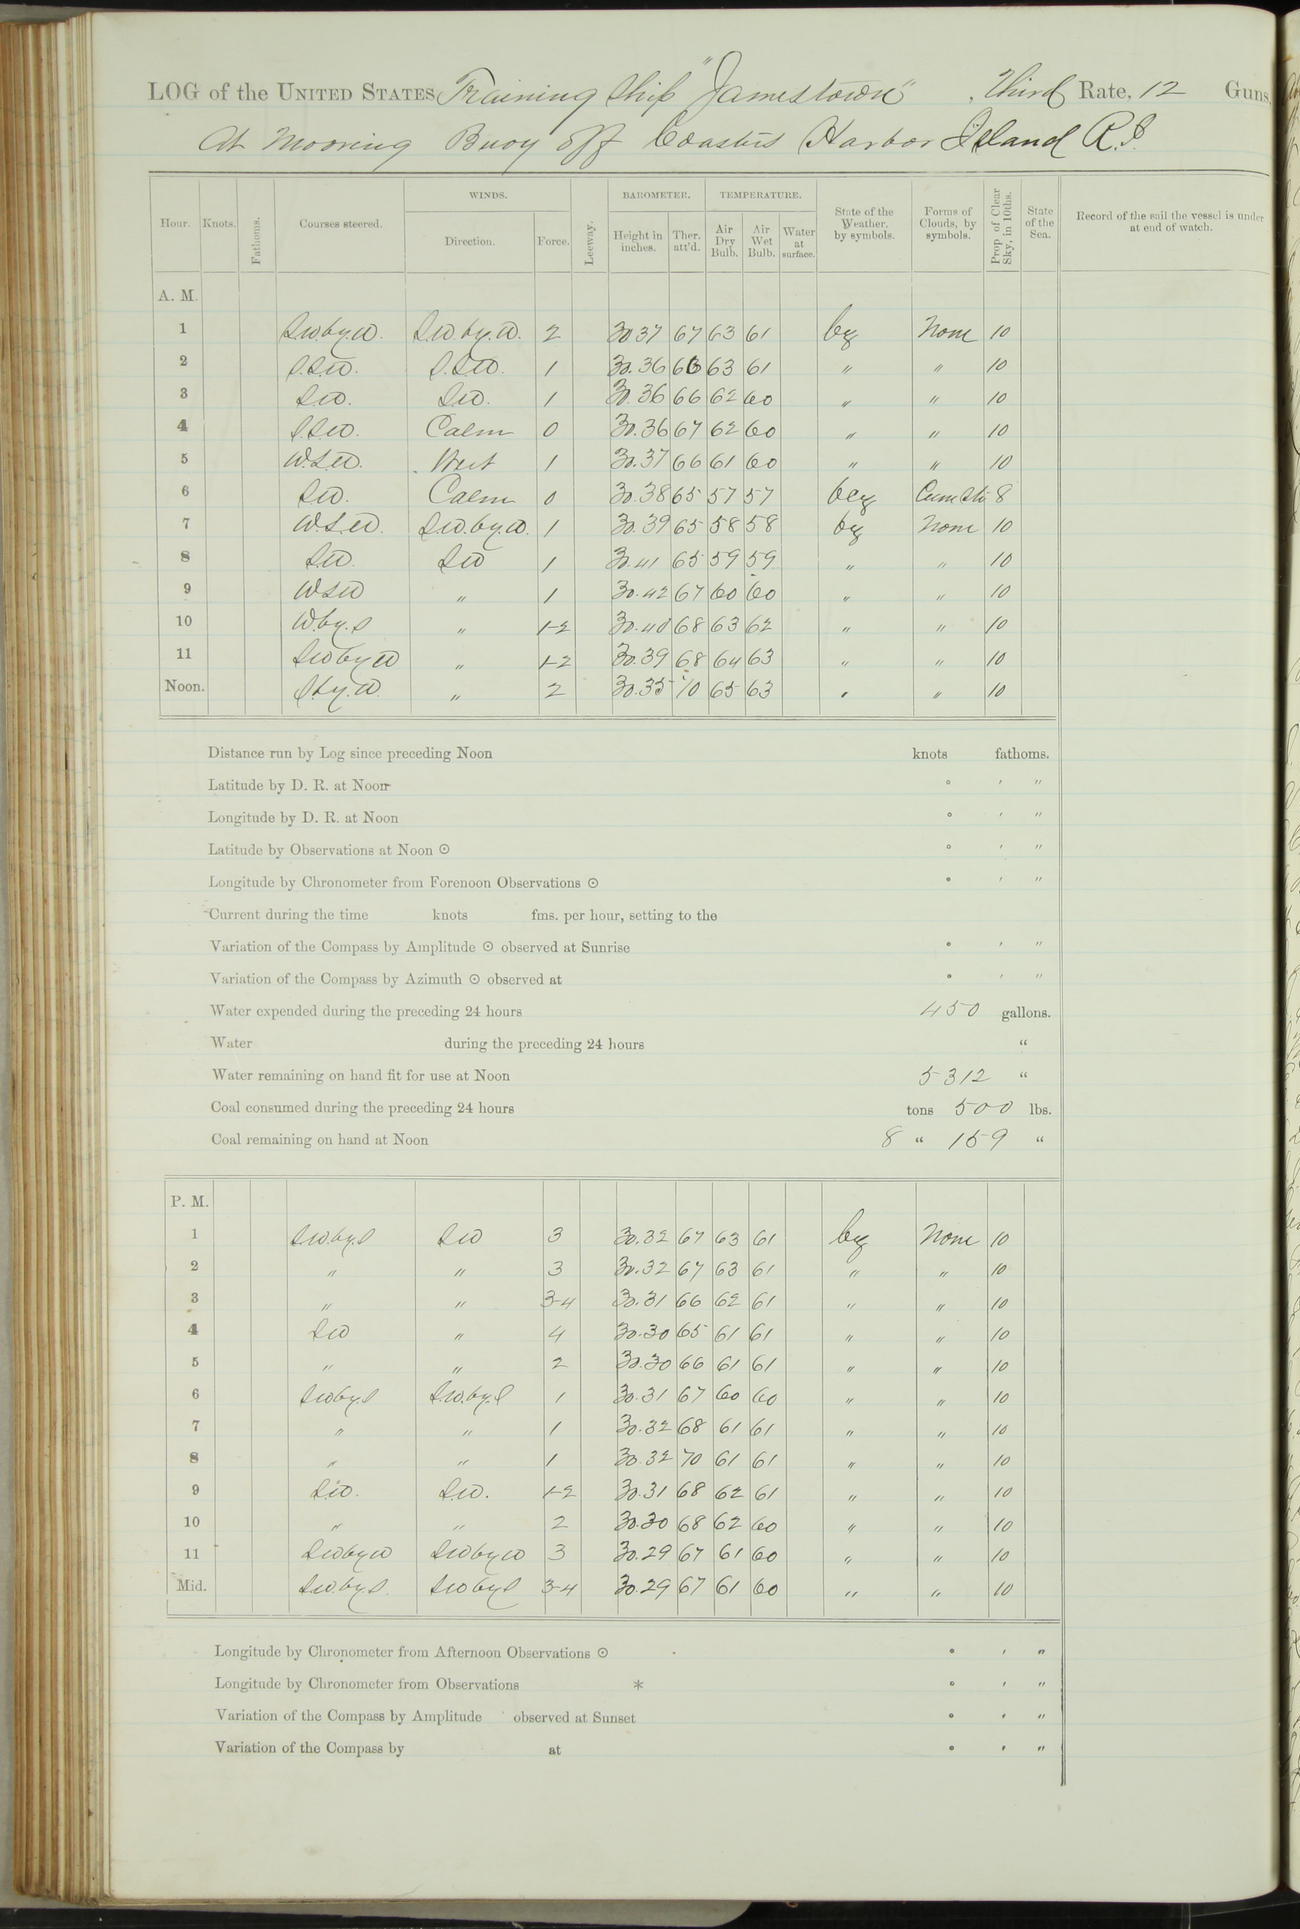 LOG of the UNITED STATES Training Ship "Jamestown", Third Rate, 12 Guns,
At Mooring Buoy off Coasters Harbor Island R.I.
Hour. Knots. Fathoms. Courses steered. WINDS. Direction. Force. Leeway. BAROMETER. Height in inches. Ther. att'd. TEMPERATURE. Air Dry Bulb. Air Wet Bulb. Water at surface. State of the Weather, by symbols. Forms of Clouds, by symbols. Prop. of Clear Sky, in 10ths. State of the Sea. Record of the sail the vessel is under at end of watch.
A. M.
1 S.W.by.W. S.W.by.W. 2 30.37 67 63 61 bg None 10
2 S.S.W. S.S.W. 1 30.36 66 63 61 " " 10
3 S.W. S.W. 1 30.36 66 62 60 " " 10
4 S.S.W. Calm 0 30.36 67 62 60 " " 10
5 W.S.W. West 1 30.37 66 61 60 " " 10
6 S.W. Calm 0 30.38 65 57 57 bcg Cum Str 8
7 W.S.W. S.W.by.W. 1 30.39 65 58 58 bg None 10
8 S.W. S.W 1 30.41 65 59 59 " " 10
9 W.S.W " 1 30.42 67 60 60 " " 10
10 W.by.S " 1-2 30.40 68 63 62 " " 10
11 S.W by W " 1-2 30.39 68 64 63 " " 10
Noon. S.by.W. " 2 30.35 70 65 63 " " 10
Distance run by Log since preceding Noon knots fathoms.
Latitude by D. R. at Noon ° ' "
Longitude by D. R. at Noon ° ' "
Latitude by Observations at Noon ☉ ° ' "
Longitude by Chronometer from Forenoon Observations ☉ ° ' "
Current during the time knots fms. per hour, setting to the
Variation of the Compass by Amplitude ☉ observed at Sunrise ° ' "
Variation of the Compass by Azimuth ☉ observed at ° ' "
Water expended during the preceding 24 hours 450 gallons.
Water during the preceding 24 hours "
Water remaining on hand fit for use at Noon 5312 "
Coal consumed during the preceding 24 hours tons 500 lbs.
Coal remaining on hand at Noon 8 " 159 "
P. M.
1 S.W.by.S S.W 3 30.32 67 63 61 bg None 10
2 " " 3 30.32 67 63 61 " " 10
3 " " 3-4 30.31 66 62 61 " " 10
4 S.W " 4 30.30 65 61 61 " " 10
5 " " 2 30.30 66 61 61 " " 10
6 S.W by.S S.W.by.S 1 30.31 67 60 60 " " 10
7 " " 1 30.32 68 61 61 " " 10
8 " " 1 30.32 70 61 61 " " 10
9 S.W. S.W. 1-2 30.31 68 62 61 " " 10
10 " " 2 30.30 68 62 60 " " 10
11 S.W by W S.W by W 3 30.29 67 61 60 " " 10
Mid. S.W by S. S.W by S 3-4 30.29 67 61 60 " " 10
Longitude by Chronometer from Afternoon Observations ☉ ° ' "
Longitude by Chronometer from Observations * ° ' "
Variation of the Compass by Amplitude observed at Sunset ° ' "
Variation of the Compass by at ° ' "